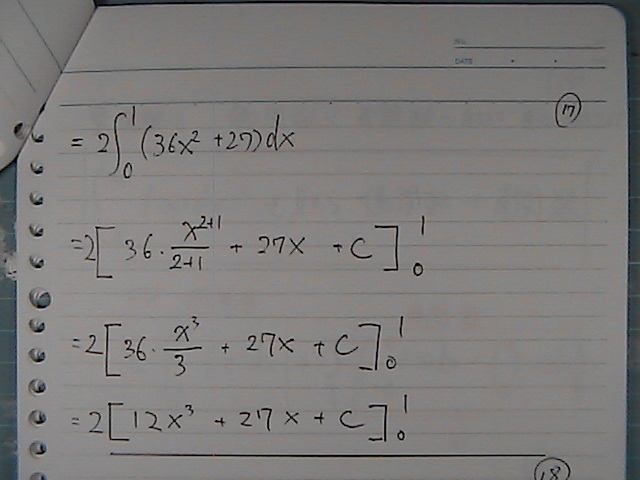 No.
DATE
⑰
= 2∫₀¹ (36x² + 27) dx
= 2[ 36 · x²⁺¹/2+1 + 27x + C ]₀¹
= 2[ 36 · x³/3 + 27x + C ]₀¹
= 2[ 12x³ + 27x + C ]₀¹
⑱